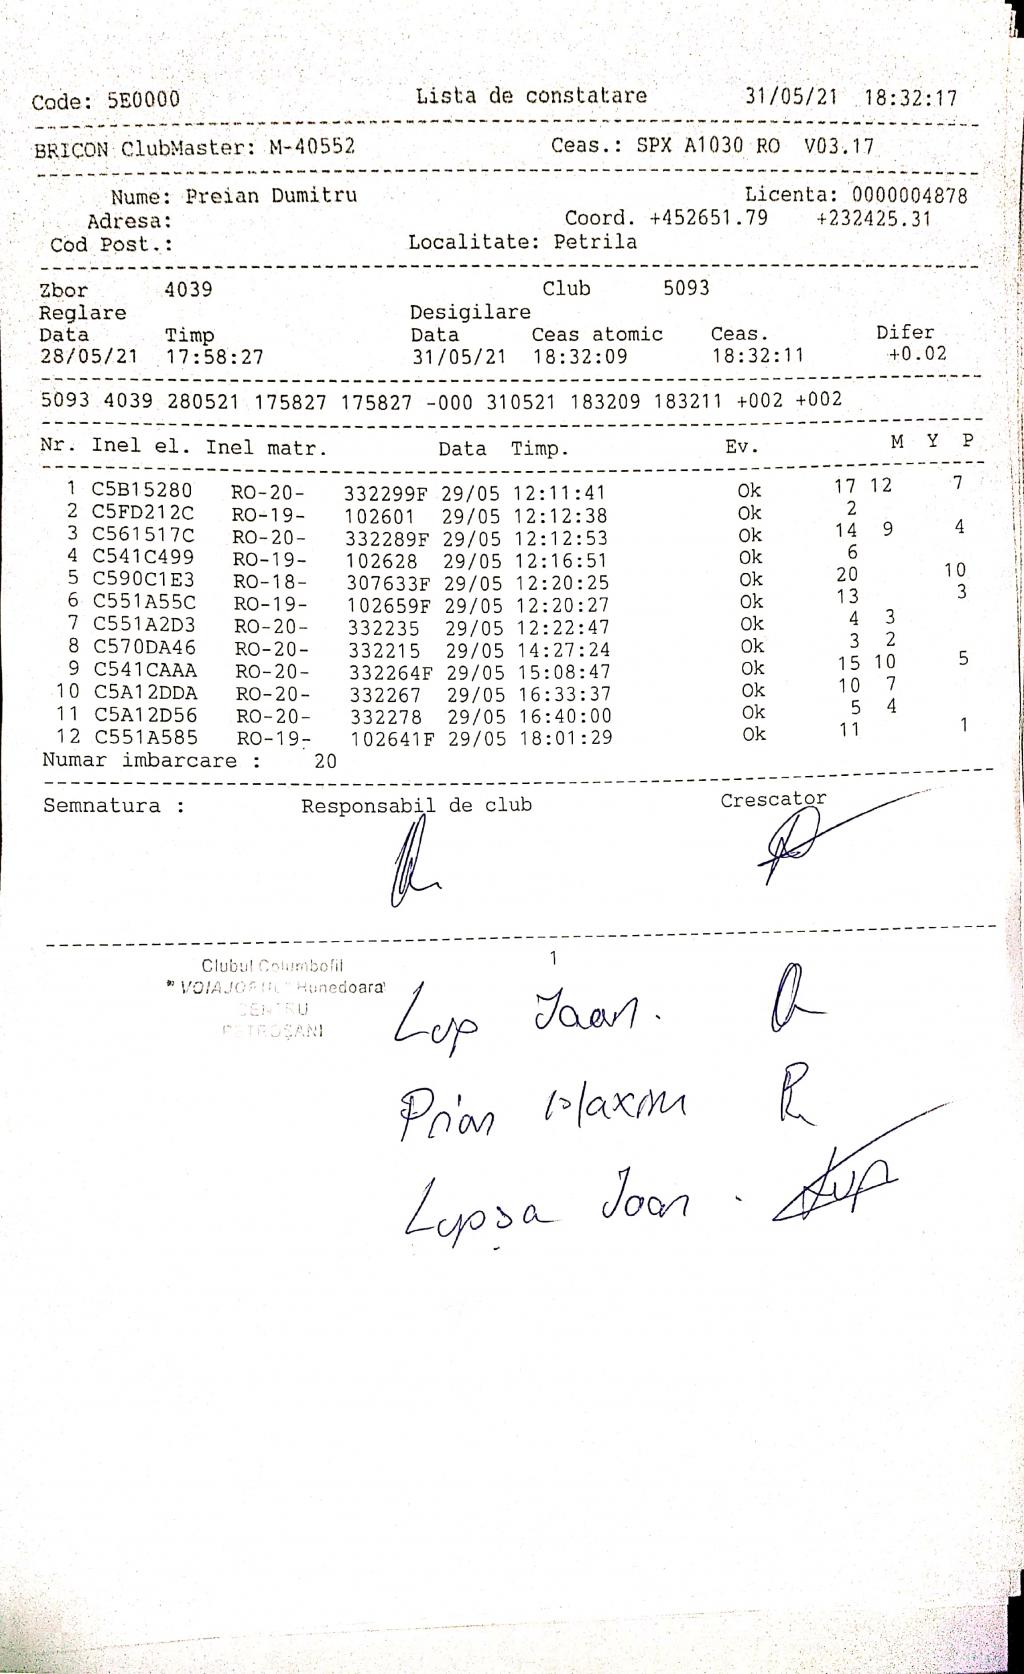 Code: 5E0000 Lista de constatare 31/05/21 18:32:17
BRICON ClubMaster: M-40552 Ceas.: SPX A1030 RO V03.17
Nume: Preian Dumitru Licenta: 0000004878
Adresa: Coord. +452651.79 +232425.31
Cod Post.: Localitate: Petrila
Zbor 4039 Club 5093
Reglare Desigilare
Data Timp Data Ceas atomic Ceas. Difer
28/05/21 17:58:27 31/05/21 18:32:09 18:32:11 +0.02
5093 4039 280521 175827 175827 -000 310521 183209 183211 +002 +002
Nr. Inel el. Inel matr. Data Timp. Ev. M Y P
1 C5B15280 RO-20- 332299F 29/05 12:11:41 Ok 17 12 7
2 C5FD212C RO-19- 102601 29/05 12:12:38 Ok 2
3 C561517C RO-20- 332289F 29/05 12:12:53 Ok 14 9 4
4 C541C499 RO-19- 102628 29/05 12:16:51 Ok 6
5 C590C1E3 RO-18- 307633F 29/05 12:20:25 Ok 20 10
6 C551A55C RO-19- 102659F 29/05 12:20:27 Ok 13 3
7 C551A2D3 RO-20- 332235 29/05 12:22:47 Ok 4 3
8 C570DA46 RO-20- 332215 29/05 14:27:24 Ok 3 2
9 C541CAAA RO-20- 332264F 29/05 15:08:47 Ok 15 10 5
10 C5A12DDA RO-20- 332267 29/05 16:33:37 Ok 10 7
11 C5A12D56 RO-20- 332278 29/05 16:40:00 Ok 5 4
12 C551A585 RO-19- 102641F 29/05 18:01:29 Ok 11 1
Numar imbarcare : 20
Semnatura : Responsabil de club Crescator
1
Clubul Columbofil
"VOIAJORUL" Hunedoara
CENTRU
PETROŞANI
Lup Ioan.
Prian Maxim
Lupşa Ioan.